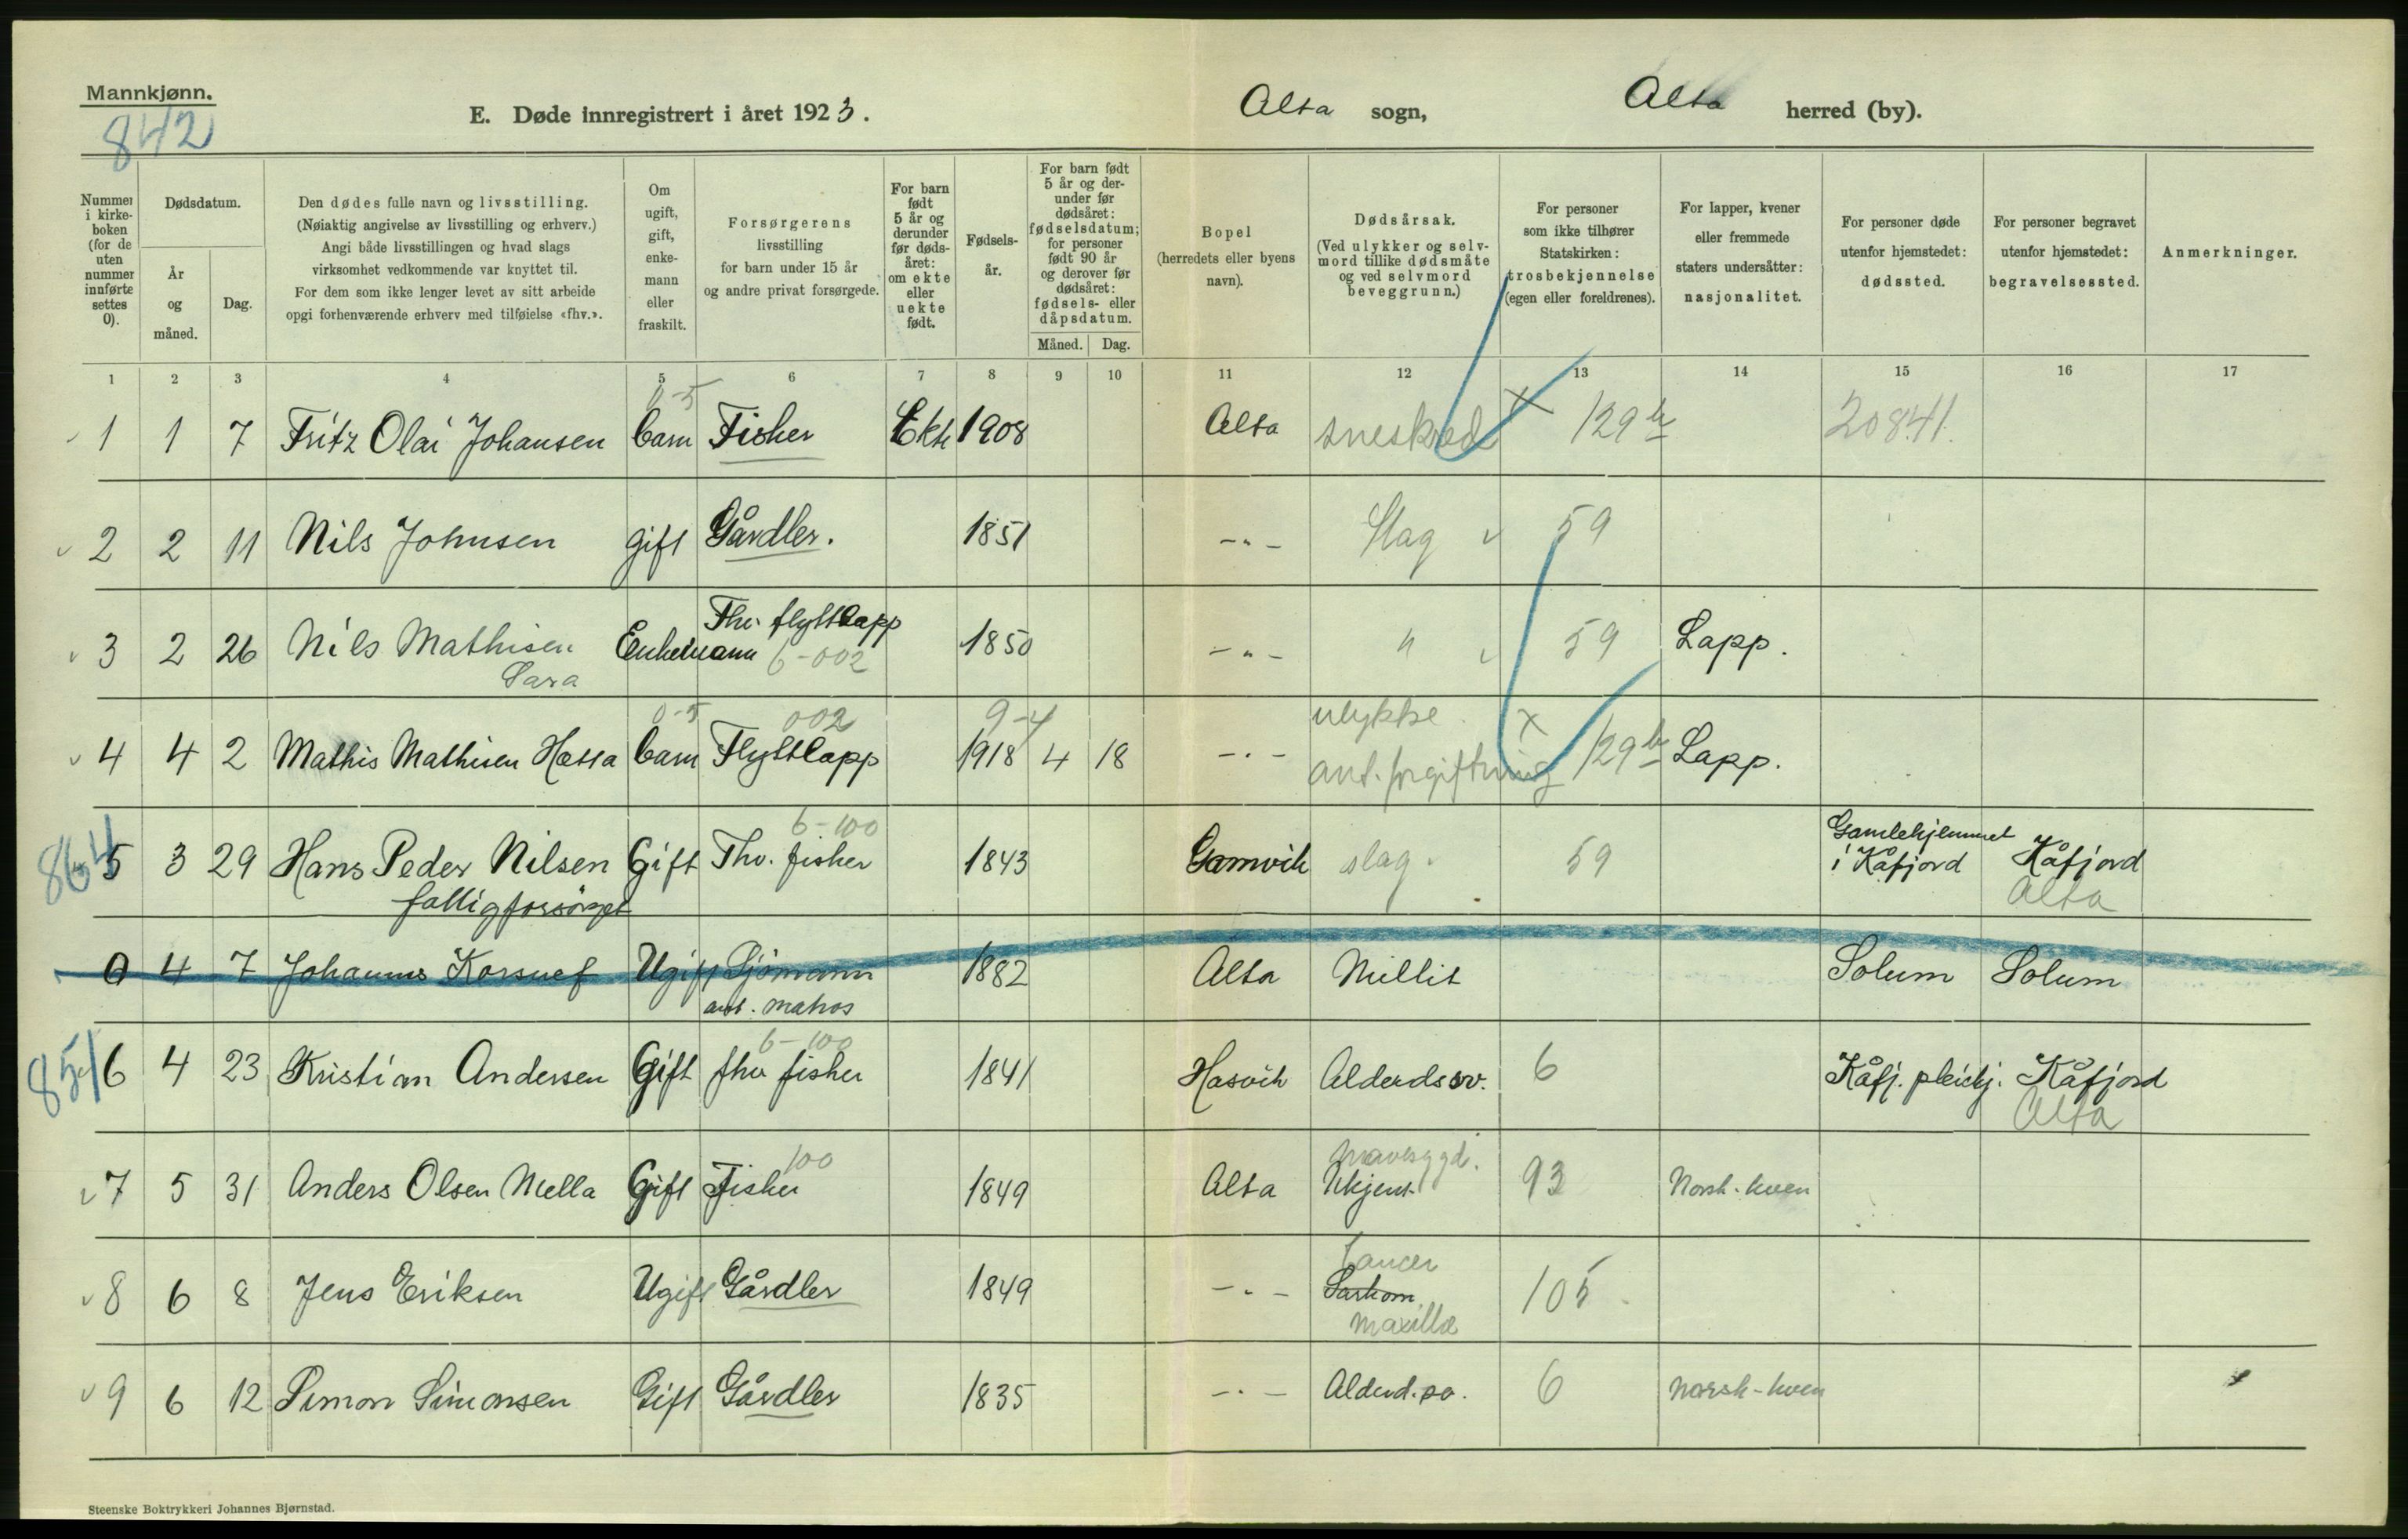 Mannkjønn.
842
E. Døde innregistrert i året 1923.
Alta sogn,
Alta herred (by).
Nummer i kirke-boken (for de uten nummer innførte settes 0).
Dødsdatum.
År og måned.
Dag.
Den dødes fulle navn og livsstilling.
(Nøiaktig angivelse av livsstilling og erhverv.)
Angi både livsstillingen og hvad slags
virksomhet vedkommende var knyttet til.
For dem som ikke lenger levet av sitt arbeide
opgi forhenværende erhverv med tilføielse «fhv.».
Om ugift, gift, enke-mann eller fraskilt.
Forsørgerens
livsstilling
for barn under 15 år
og andre privat forsørgede.
For barn født 5 år og derunder før døds-året: om ekte eller uekte født.
Fødsels-år.
For barn født 5 år og der-under før dødsåret: fødselsdatum; for personer født 90 år og derover før dødsåret: fødsels- eller dåpsdatum.
Måned. Dag.
Bopel
(herredets eller byens
navn).
Dødsårsak.
(Ved ulykker og selv-
mord tillike dødsmåte
og ved selvmord
beveggrunn.)
For personer
som ikke tilhører
Statskirken:
trosbekjennelse
(egen eller foreldrenes).
For lapper, kvener
eller fremmede
staters undersåtter:
nasjonalitet.
For personer døde
utenfor hjemstedet:
dødssted.
For personer begravet
utenfor hjemstedet:
begravelsessted.
Anmerkninger.
1 2 3 4 5 6 7 8 9 10 11 12 13 14 15 16 17
0-5
1 1 7 Fritz Olai Johansen barn Fisker Ekte 1908 Alta sneskred x 129 b 20841.
2 2 11 Nils Johnsen gift Gårdbr. 1851 -"- Slag 59
3 2 26 Nils Mathisen Enkemann Fhv. flyttlapp 1850 -"- " 59 Lapp.
Sara 6-002
0-5 002 9-4 ulykke x
4 4 2 Mathis Mathisen Hætta barn Flyttlapp 1918 4 18 -"- ant. forgiftning 129 b Lapp.
864 6-100
5 3 29 Hans Peder Nilsen Gift Fhv. fisker 1843 Gamvik slag. 59 Gamlehjemmet i Kåfjord Kåfjord
fattigforsørget Alta
0 4 7 Johannes Korsnes Ugift Sjømann 1882 Alta Nillit Solum Solum
ant. matros
851 6-100
6 4 23 Kristian Andersen Gift fhv fisker 1841 Hasvik Alderdssv. 6 Kåfj. pleiehj. Kåfjord
Alta
100 mavesygd.
7 5 31 Anders Olsen Mella Gift Fisker 1849 Alta Ukjent. 93 Norsk-kven
Cancer
8 6 8 Jens Eriksen Ugift Gårdbr 1849 -"- Sarkom 105
maxillæ
9 6 12 Simon Simonsen Gift Gårdbr 1835 -"- Alderd.sv. 6 norsk-kven
Steenske Boktrykkeri Johannes Bjørnstad.